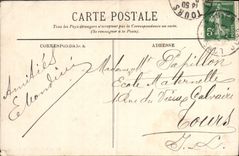 CARTE POSTALE
Tous les Pays étrangers n'acceptent pas la Correspondance au recto
(Se renseigner à la Poste)
CORRESPONDANCE
ADRESSE
TOURS
Amitiés
Madame Papillon
Ecole Maternelle
Rue du Vieux Calvaire
Tours
I. L.